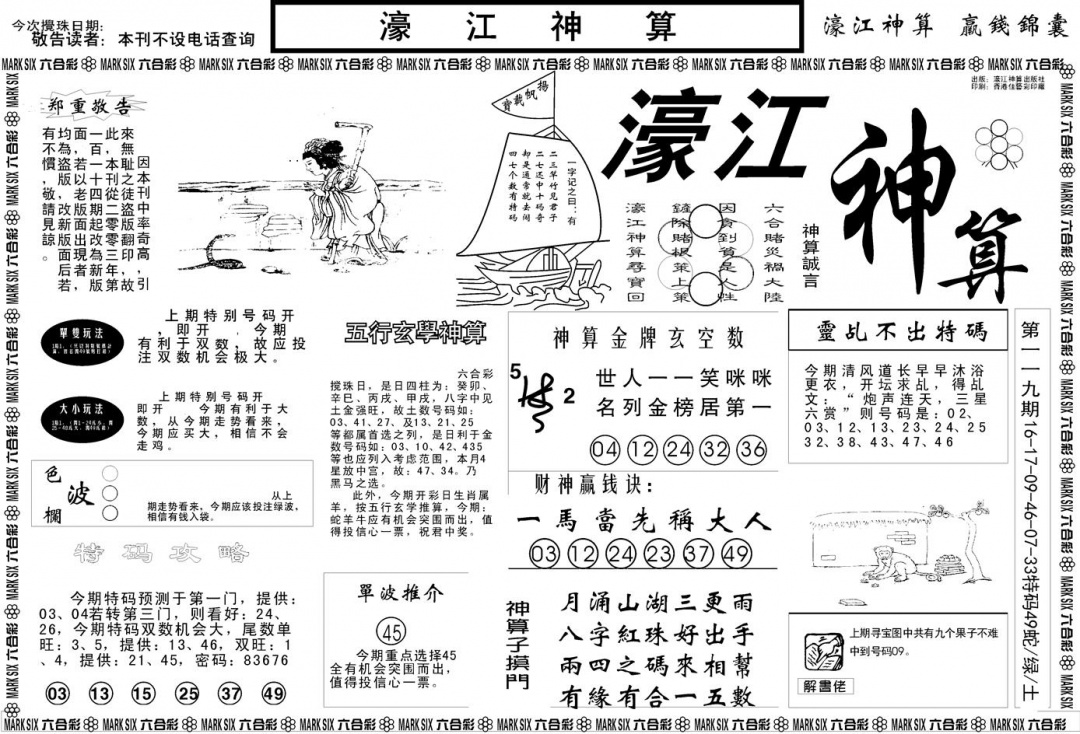 今次攪珠日期:
敬告读者：本刊不设电话查询
濠 江 神 算
濠江神算 贏錢錦囊
MARK SIX 六合彩
出版：濠江神算出版社
印刷：香港佳藝彩印廠
郑重敬告
因本刊中率奇高，引
來無恥之徒盜版翻印，故
此，本刊從二零零三年第
一百一十四期起改為新版，
面若以老版面出現者，若
均為盗版，敬請見諒。
有不慣
揚帆載寶
一字记之曰：有
二三草竹见君子
二七还中十码奇
却是通常就去闹
四七个数有特码
濠江
神算
六合賭災禍大陸
因貪到貧是人性
鏟除賭根策上策
濠江神算尋寶回
神算誠言
單雙玩法
上期特别号码开
，即开　．今期
有利于双数，故应投
注双数机会极大。
大小玩法
上期特别号码开
即开　今期有利于大
数，从今期走势看来，
今期应买大，相信不会
走鸡。
色波欄
从上
期走势看来，今期应该投注绿波，
相信有钱入袋。
特码攻略
今期特码预测于第一门，提供：
03、04若转第三门，则看好：24、
26，今期特码双数机会大，尾数单
旺：3、5，提供：13、46，双旺：1
、4，提供：21、45，密码：83676
03 13 15 25 37 49
五行玄學神算
六合彩
搅珠日，是日四柱为：癸卯、
辛巳、丙戌、甲戌，八字中见
土金强旺，故土数号码如：
03、41、27、及13、21、25
等都属首选之列，是日利于金
数号码如：03、10、42、435
等也应列入考虑范围，本月4
星放中宫，故：47、34。乃
黑马之选。
此外，今期开彩日生肖属
羊，按五行玄学推算，今期：
蛇羊牛应有机会突围而出，值
得投信心一票，祝君中奖。
單波推介
45
今期重点选择45
全有机会突围而出，
值得投信心一票。
神算金牌玄空数
5
2
世人一一笑咪咪
名列金榜居第一
04 12 24 32 36
财神赢钱诀：
一馬當先稱大人
03 12 24 23 37 49
神算子摸門
月涌山湖三更雨
八字紅珠好出手
兩四之碼來相幫
有緣有合一五數
靈乩不出特碼
今期清风道长早早沐浴
更衣，开坛求乩，得乩
文：“炮声连天，三星
六赏”则号码是：02、
03、12、13、23、24、25
32、38、43、47、46
上期寻宝图中共有九个果子不难
中到号码09。
解畫佬
第一一九期16-17-09-46-07-33特码49蛇/绿/土